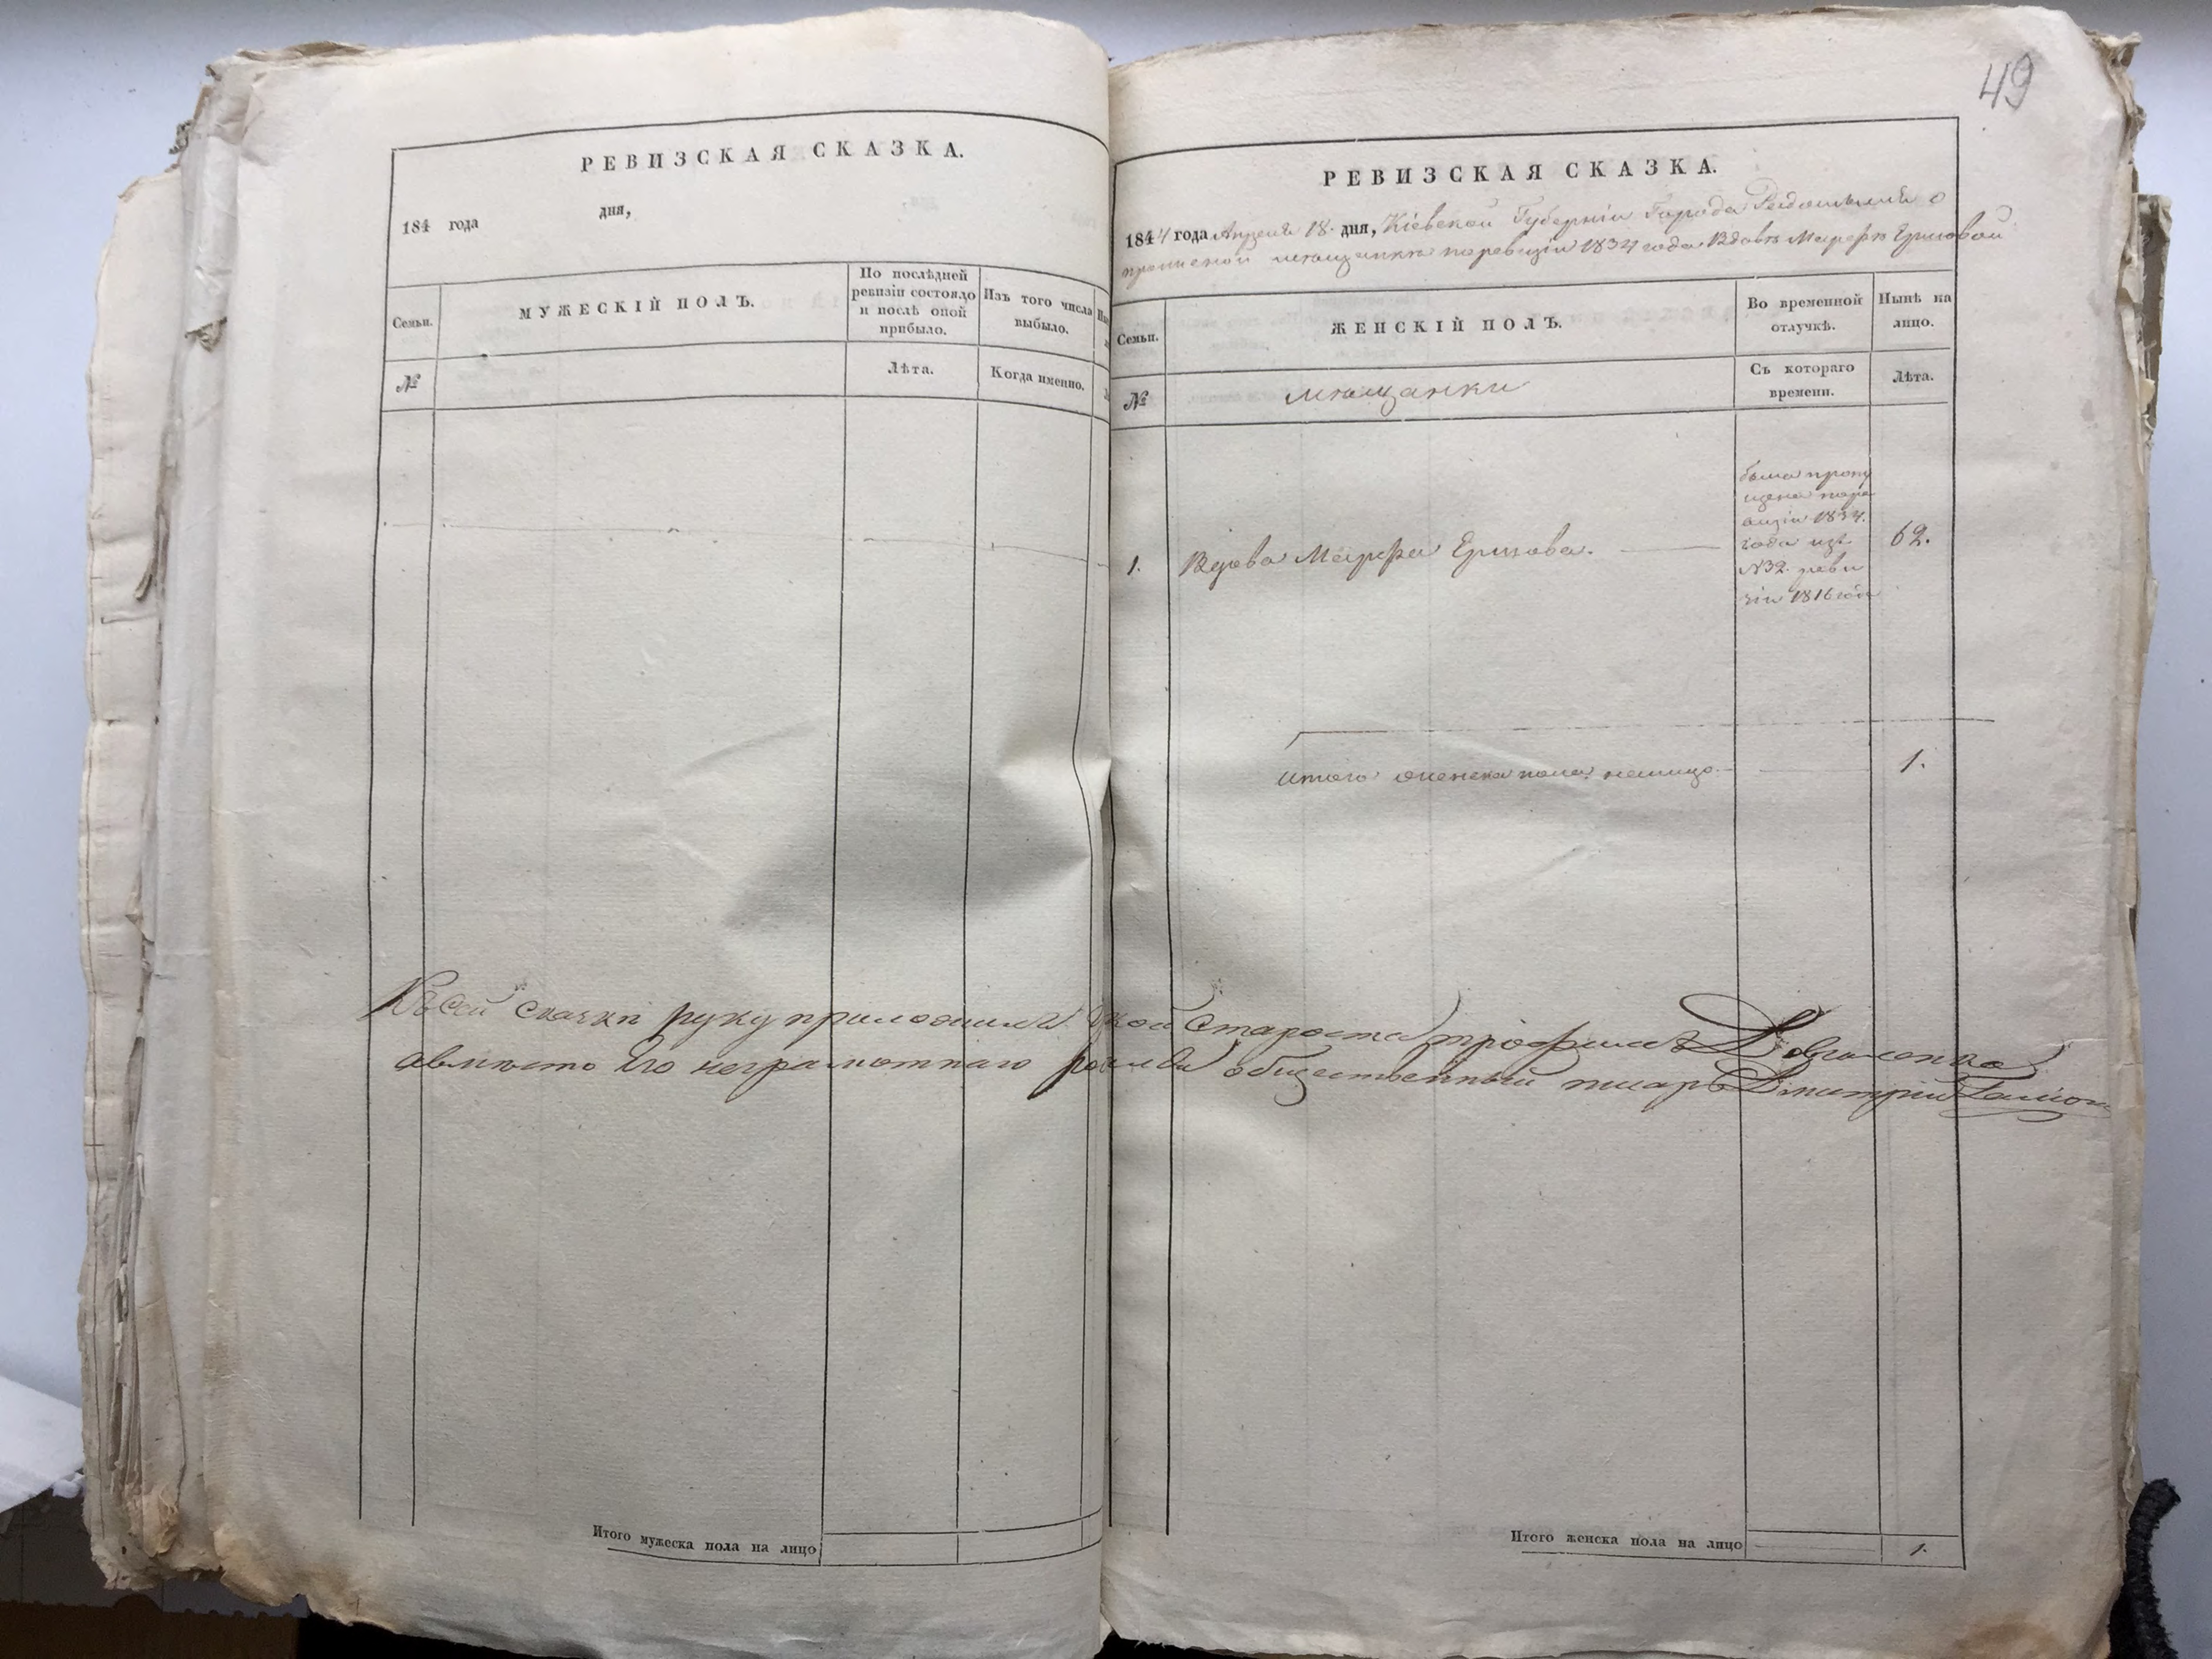 49
РЕВИЗСКАЯ СКАЗКА.
184 года дня,
Семьи.
МУЖЕСКІЙ ПОЛЪ.
По послѣдней
ревизіи состояло
и послѣ оной
прибыло.
Изъ того числа
выбыло.
№
Лѣта.
Когда именно.
Итого мужеска пола на лицо
РЕВИЗСКАЯ СКАЗКА.
1844 года Апреля 18 дня, Кіевской Губерніи Города Радомысля о
мѣщанкѣ поревизіи 1834 года Вдовѣ Марфѣ
Семьи.
ЖЕНСКІЙ ПОЛЪ.
Во временной
отлучкѣ.
Нынѣ на
лицо.
№
мѣщанки
Съ котораго
времени.
Лѣта.
1.
Вдова Марфа
была пропу
щена поре
визіи 1834.
года изъ
№32. реви
зіи 1816 года
62.
итого женска пола налицо
1.
Къ сей сказки руку приложилъ староста трофимъ
авмѣсто Его неграмотнаго общественный писарь Дмитрій
Итого женска пола на лицо
1.